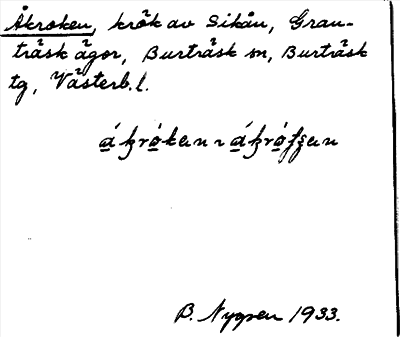 Åkroken, krök av Sikån, Gran-
träsk ägor, Burträsk sn, Burträsk
tg, Västerb. l.
B. Nygren 1933.